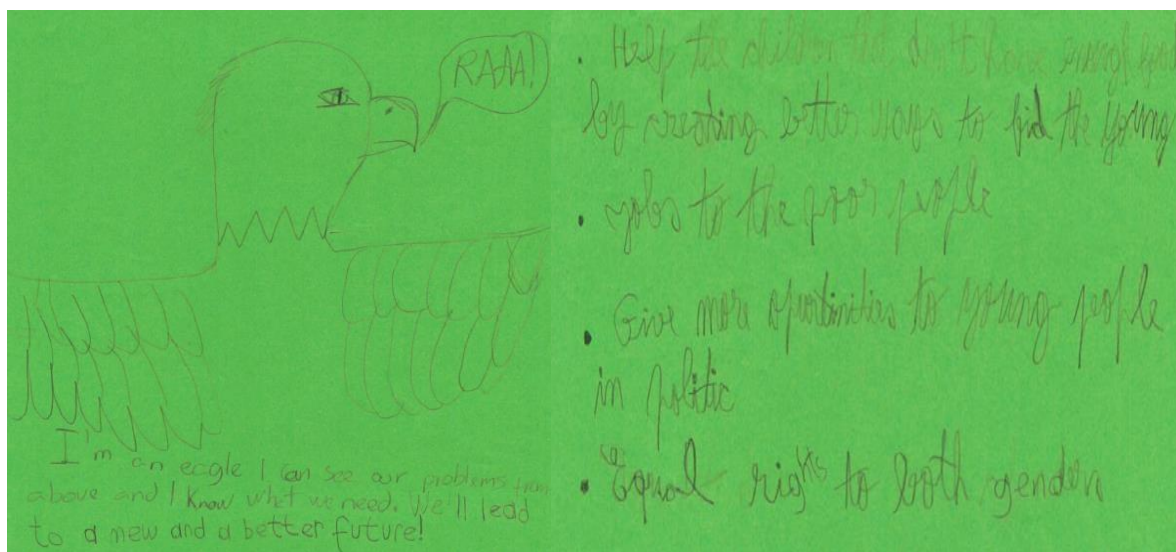 RAAA!
I'm an eagle I can see our problems from
above and I know what we need. We'll lead
to a new and a better future!
• Help the children that don't have enough
by creating better ways to find the young
• jobs to the poor people
• Give more oportinities to young people
in politic
• Equal rights to both genders